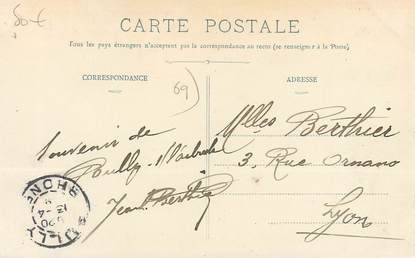 80 €
CARTE POSTALE
Tous les pays étrangers n'acceptent pas la correspondance au recto (se renseigner à la Poste)
CORRESPONDANCE
ADRESSE
69
Souvenir de
Bully-s/l'Arbresle
Jean Berthier
Mlles Berthier
3, Rue Ornano
Lyon
BULLY
RHONE